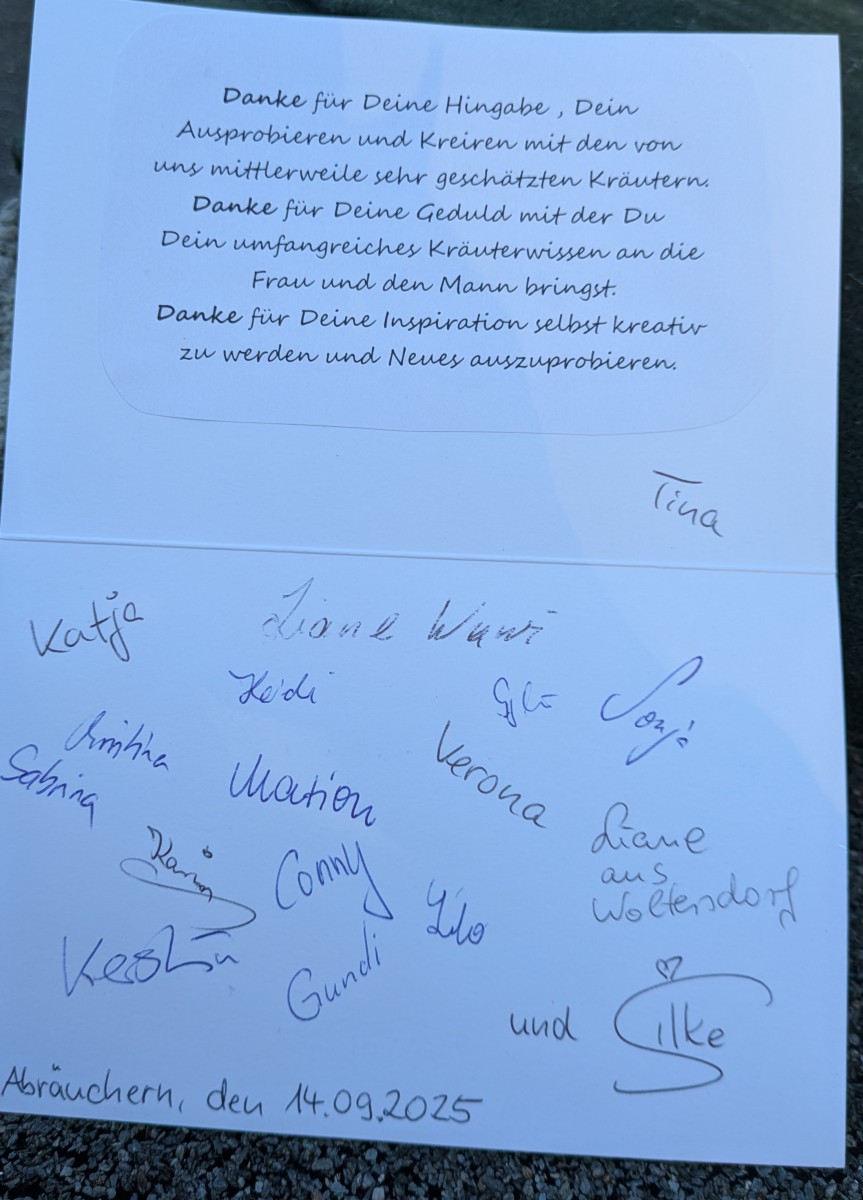 Danke für Deine Hingabe , Dein
Ausprobieren und Kreiren mit den von
uns mittlerweile sehr geschätzten Kräutern.
Danke für Deine Geduld mit der Du
Dein umfangreiches Kräuterwissen an die
Frau und den Mann bringst.
Danke für Deine Inspiration selbst kreativ
zu werden und Neues auszuprobieren.
Tina
Katja
Liane
Heidi
Sonja
Christina
Verona
Sabrina
Marion
Liane
aus
Woltersdorf
Karin
Conny
Lilo
Kerstin
Gundi
und Silke
Abräuchern, den 14.09.2025